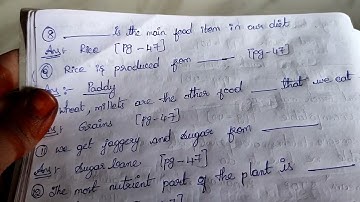 ⑧ ______ is the main food item in our diet
Ans:- Rice [Pg-47]
⑨ Rice is produced from ____ [Pg-47]
Ans:- Paddy
wheat, millets are the other food ____ that we eat
Ans:- Grains [Pg-47]
⑪ we get jaggery and sugar from ______
Ans:- Sugar cane [Pg-47]
⑫ The most nutrient part of the plant is ____